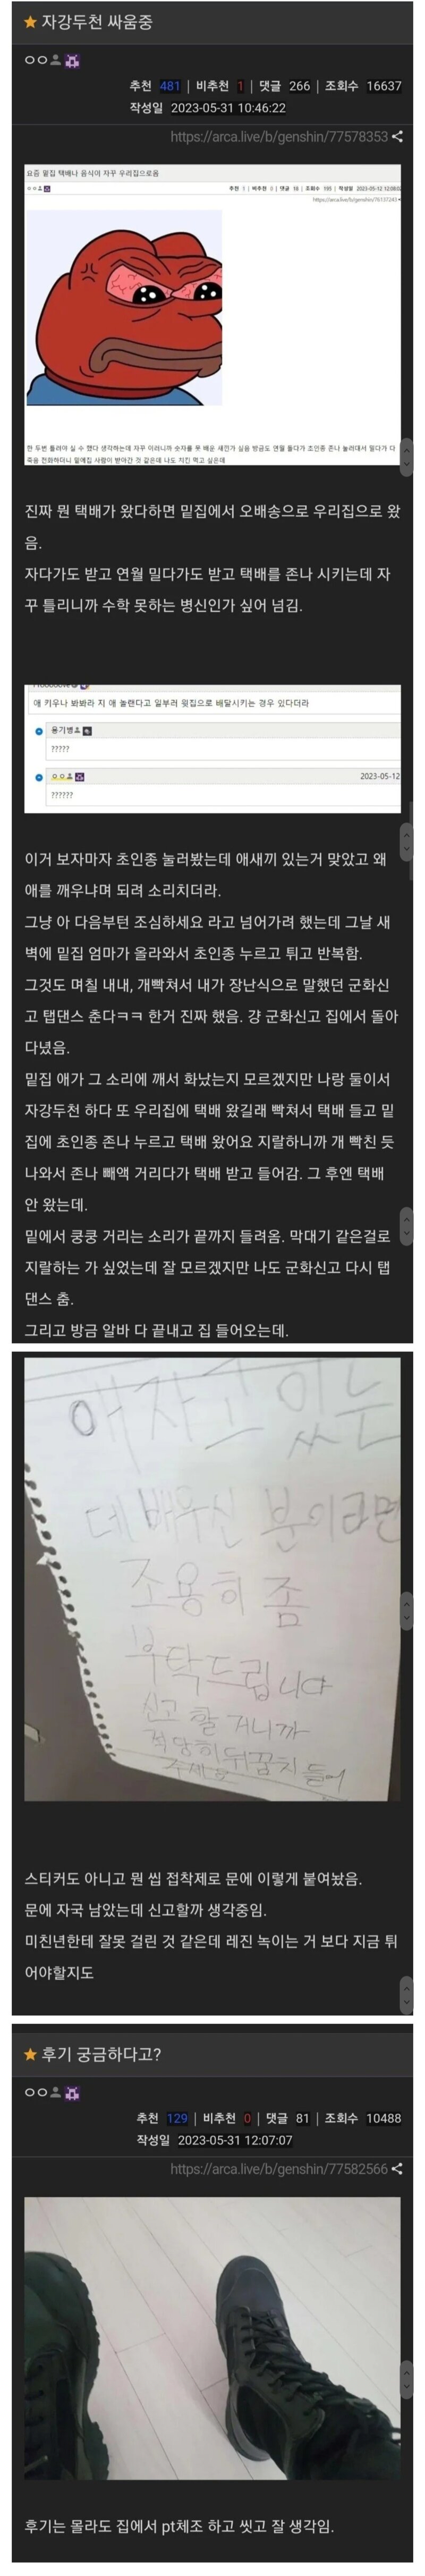 자강두천 싸움중
ㅇㅇ
추천 481 | 비추천 1 | 댓글 266 | 조회수 16637
작성일 2023-05-31 10:46:22
https://arca.live/b/genshin/77578353
요즘 밑집 택배나 음식이 자꾸 우리집으로옴
ㅇㅇ
추천 1 | 비추천 0 | 댓글 18 | 조회수 195 | 작성일 2023-05-12
https://arca.live/b/genshin/76137243
한 두번 틀려야 실 수 했다 생각하는데 자꾸 이러니까 숫자를 못 배운 새낀가 싶음 방금도 연월 돌다가 초인종 존나 눌러대서 밀다가 다
죽음 전화하더니 밑에집 사람이 받아간 것 같은데 나도 치킨 먹고 싶은데
진짜 뭔 택배가 왔다하면 밑집에서 오배송으로 우리집으로 왔
음.
자다가도 받고 연월 밀다가도 받고 택배를 존나 시키는데 자
꾸 틀리니까 수학 못하는 병신인가 싶어 넘김.
애 키우나 봐봐라 지 애 놀랜다고 일부러 윗집으로 배달시키는 경우 있다더라
용기병
?????
ㅇㅇ
2023-05-12
??????
이거 보자마자 초인종 눌러봤는데 애새끼 있는거 맞았고 왜
애를 깨우냐며 되려 소리치더라.
그냥 아 다음부턴 조심하세요 라고 넘어가려 했는데 그날 새
벽에 밑집 엄마가 올라와서 초인종 누르고 튀고 반복함.
그것도 며칠 내내, 개빡쳐서 내가 장난식으로 말했던 군화신
고 탭댄스 춘다ㅋㅋ 한거 진짜 했음. 걍 군화신고 집에서 돌아
다녔음.
밑집 애가 그 소리에 깨서 화났는지 모르겠지만 나랑 둘이서
자강두천 하다 또 우리집에 택배 왔길래 빡쳐서 택배 들고 밑
집에 초인종 존나 누르고 택배 왔어요 지랄하니까 개 빡친 듯
나와서 존나 빼액 거리다가 택배 받고 들어감. 그 후엔 택배
안 왔는데.
밑에서 쿵쿵 거리는 소리가 끝까지 들려옴. 막대기 같은걸로
지랄하는 가 싶었는데 잘 모르겠지만 나도 군화신고 다시 탭
댄스 춤.
그리고 방금 알바 다 끝내고 집 들어오는데.
애 자고 있는
데 배우신 분이라면
조용히 좀
부탁드립니다
신고 할 거니까
적당히 뒤꿈치 들어
주세요
스티커도 아니고 뭔 씹 접착제로 문에 이렇게 붙여놨음.
문에 자국 남았는데 신고할까 생각중임.
미친년한테 잘못 걸린 것 같은데 레진 녹이는 거 보다 지금 튀
어야할지도
후기 궁금하다고?
ㅇㅇ
추천 129 | 비추천 0 | 댓글 81 | 조회수 10488
작성일 2023-05-31 12:07:07
https://arca.live/b/genshin/77582566
후기는 몰라도 집에서 pt체조 하고 씻고 잘 생각임.